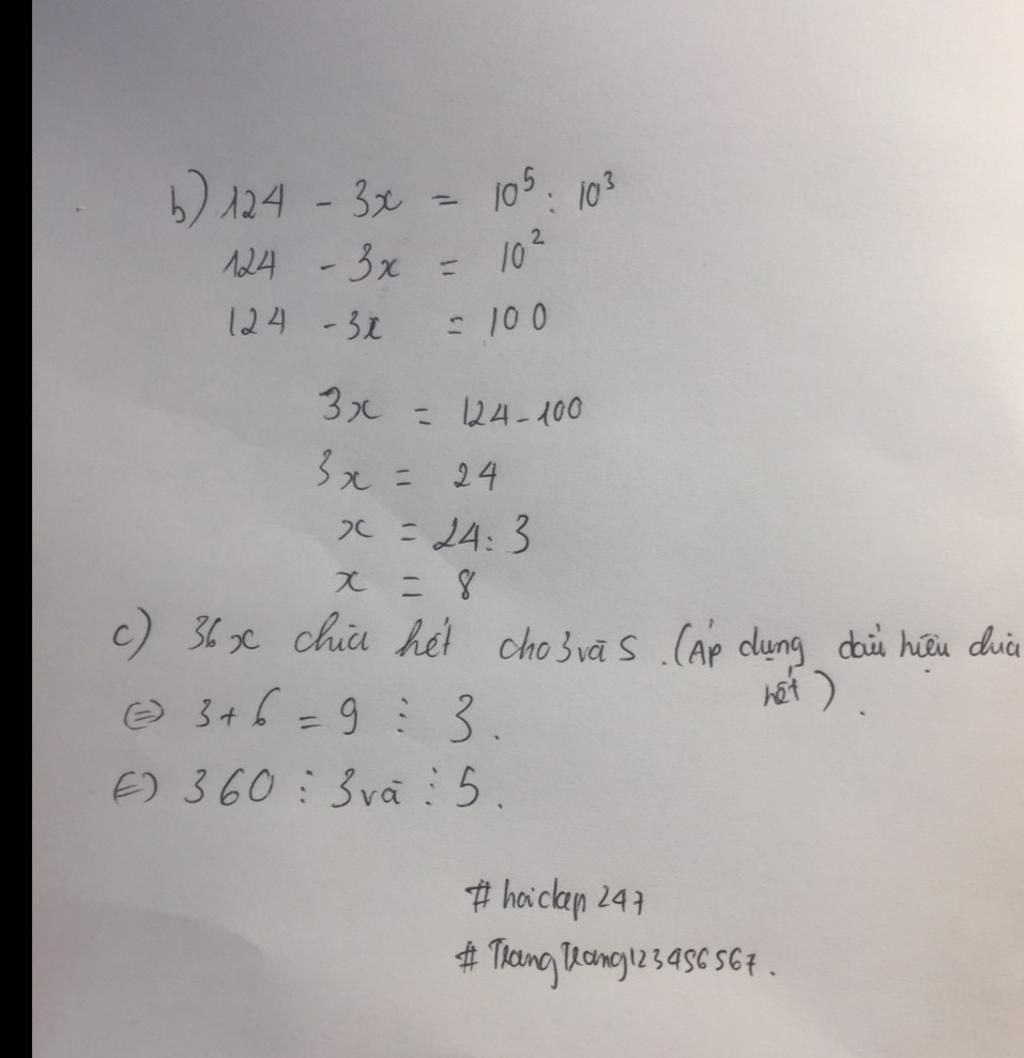 b) 124 - 3x = 10⁵ : 10³
124 - 3x = 10²
124 - 3x = 100
3x = 124 - 100
3x = 24
x = 24 : 3
x = 8
c) 36x chia hết cho 3 và 5. (Áp dụng dấu hiệu chia
hết).
⇔ 3 + 6 = 9 ⋮ 3.
⇔ 360 ⋮ 3 và ⋮ 5.
# hoidap 247
# TrangTrang123456567.